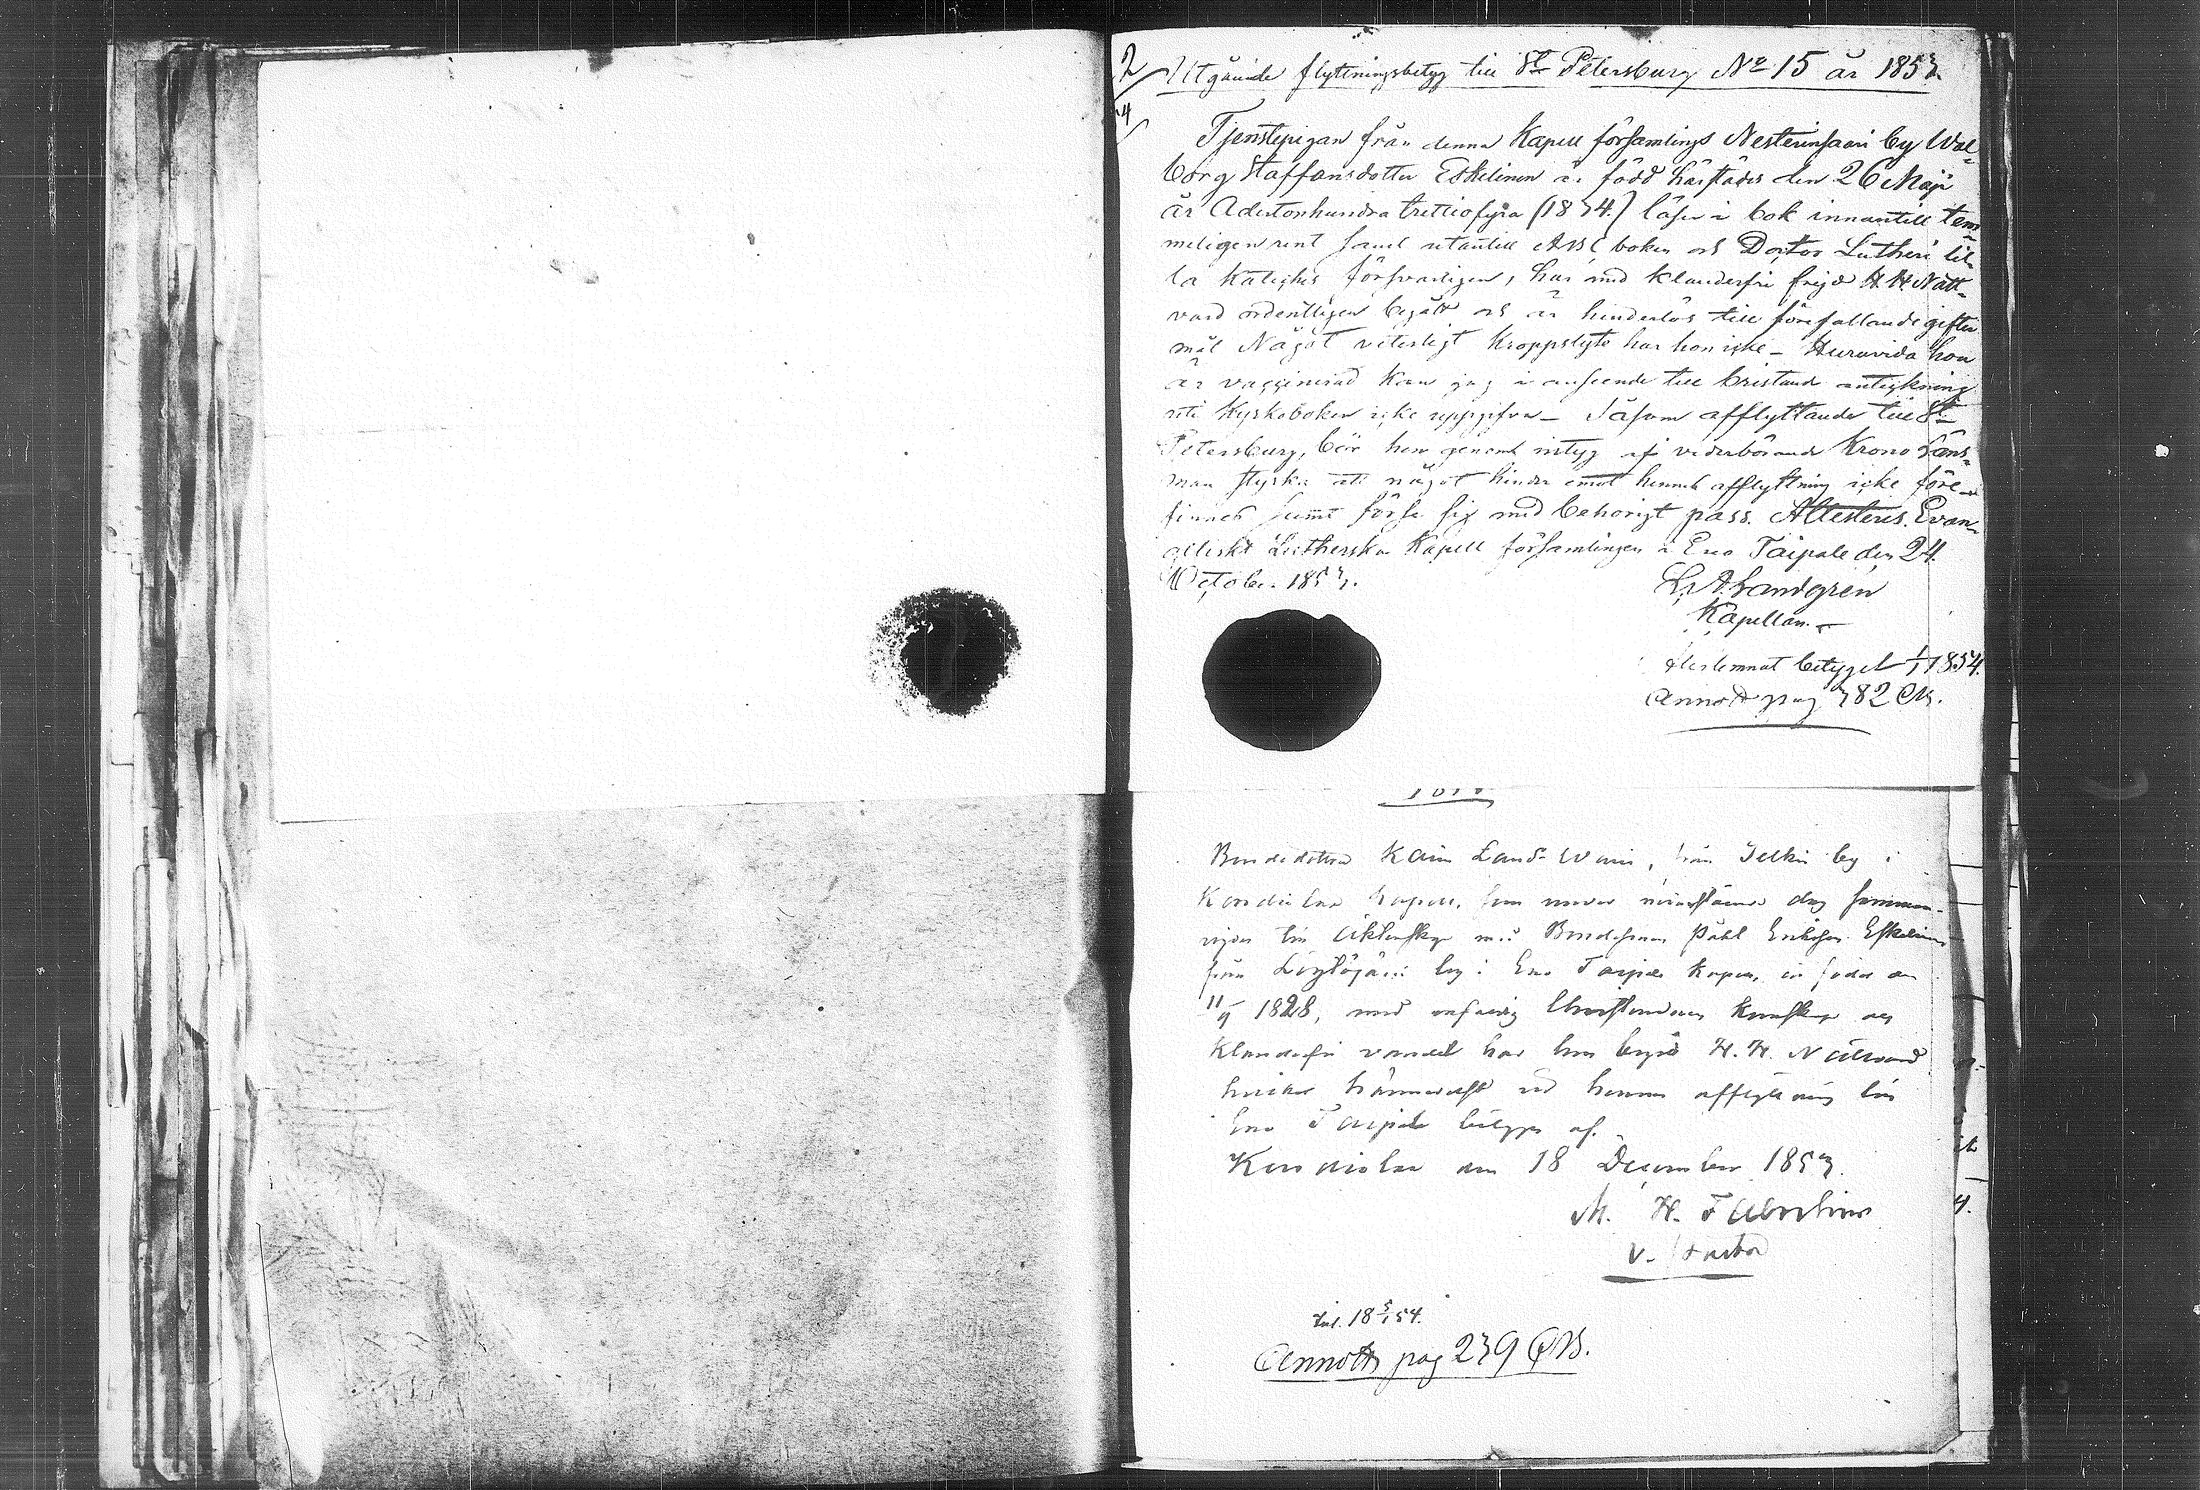 2
Utgående flyttningsbetyg till St Petersburg No 15 år 1853.
4
Tjenstepigan från denna Kapell församlings Nesterinsaari by Wal-
borg Staffansdotter Eskelinen är född härstädes den 26 Maji
år Adertonhundra trettiofyra (1834.) läser i bok innantill tem-
meligen rent samt utantill ABC boken och Doctor Lutheri lil-
la Kateches försvarligen, har med klanderfri frejd H. H. Natt-
vard ordentligen begått och är hinderlös till förefallande gifter
mål Något veterligt Kroppslyte har hon icke – Huruvida hon
är vaccinerad kan jag i anseende till bristande anteckning
uti Kyrkoboken icke uppgifva – Såsom afflyttande till St
Petersburg, bör hon genom intyg af vederbörande Krono Läns-
man styrka att något hinder emot hennes afflyttning icke före-
finnes samt förse sig med behörigt pass. Attesteres. Evan-
geliskt Lutherska Kapell församlingen i Eno Taipale den 24.
October 1853.
L. A. Sandgren
Kapellan.
Återlemnat betyget 1/1 1854.
Annott pag 382 CB.
Bondedottren Karin Lands Waini, från Jelkin by i
Kondiolax Kapell, som
till äktenskap med Bondesonen Påhl Eriksson Eskelinen
från Löytöjärvi by i Eno Taipale Kapell, är född den
11/9 1828, med Christendoms Kunskap och
Klanderfri vandel har hon begått H. H. Nattvard
hvilket härmedelst vid hennes afflyttning till
Eno Taipale betygas af.
Kondiolax den 18 December 1853.
M. H. Fabritius
v. Pastor
Inl. 18 5/1 54.
Annott pag 239 CB.